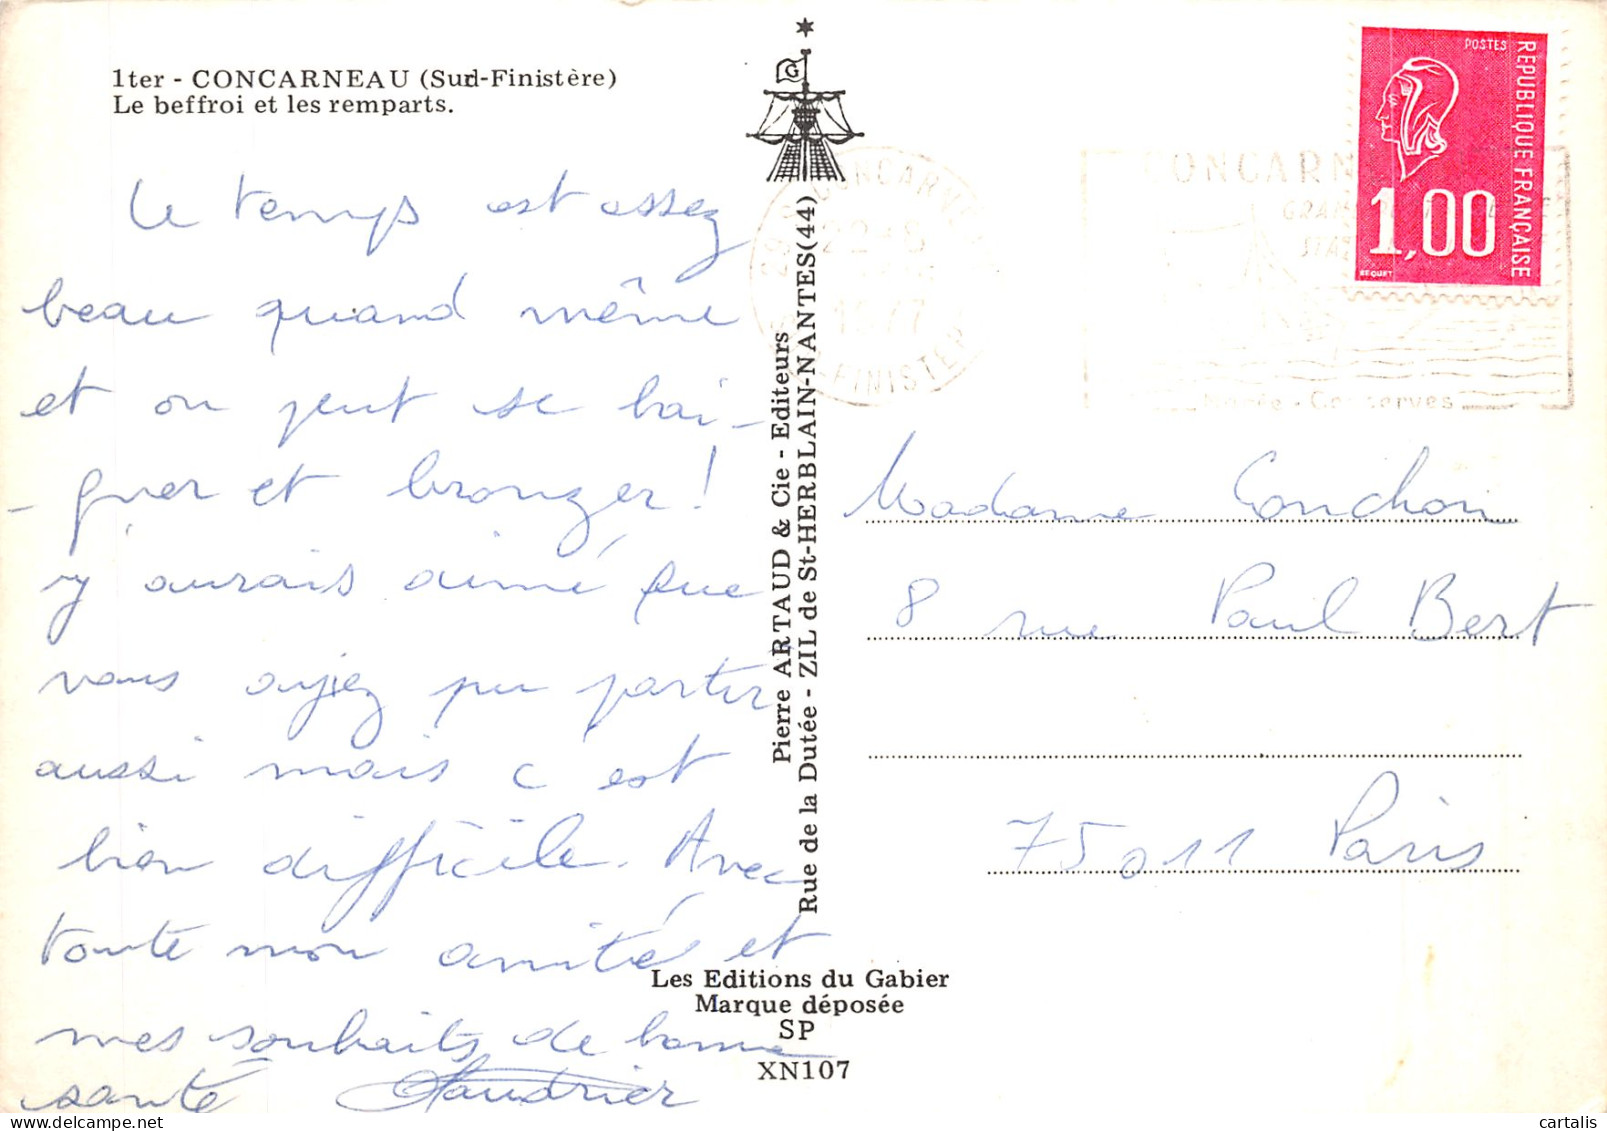 1ter - CONCARNEAU (Sud-Finistère)
Le beffroi et les remparts.
Le temps est assez
beau quand même
et on peut se bai-
-gner et bronzer!
J'aurais aimé que
vous ayiez pu partir
aussi mais c'est
bien difficile. Avec
toute mon amitié et
mes souhaits de bonne
santé
G
Pierre ARTAUD & Cie - Editeurs
Rue de la Dutée - ZIL de St-HERBLAIN-NANTES(44)
Les Editions du Gabier
Marque déposée
SP
XN107
CONCARNEAU
22-8
1977
FINISTERE
CONCARN
Conserves
POSTES
REPUBLIQUE FRANÇAISE
1,00
BEQUET
Madame Conchon
8 rue Paul Bert
75011 Paris
cartalis
delcampe.net